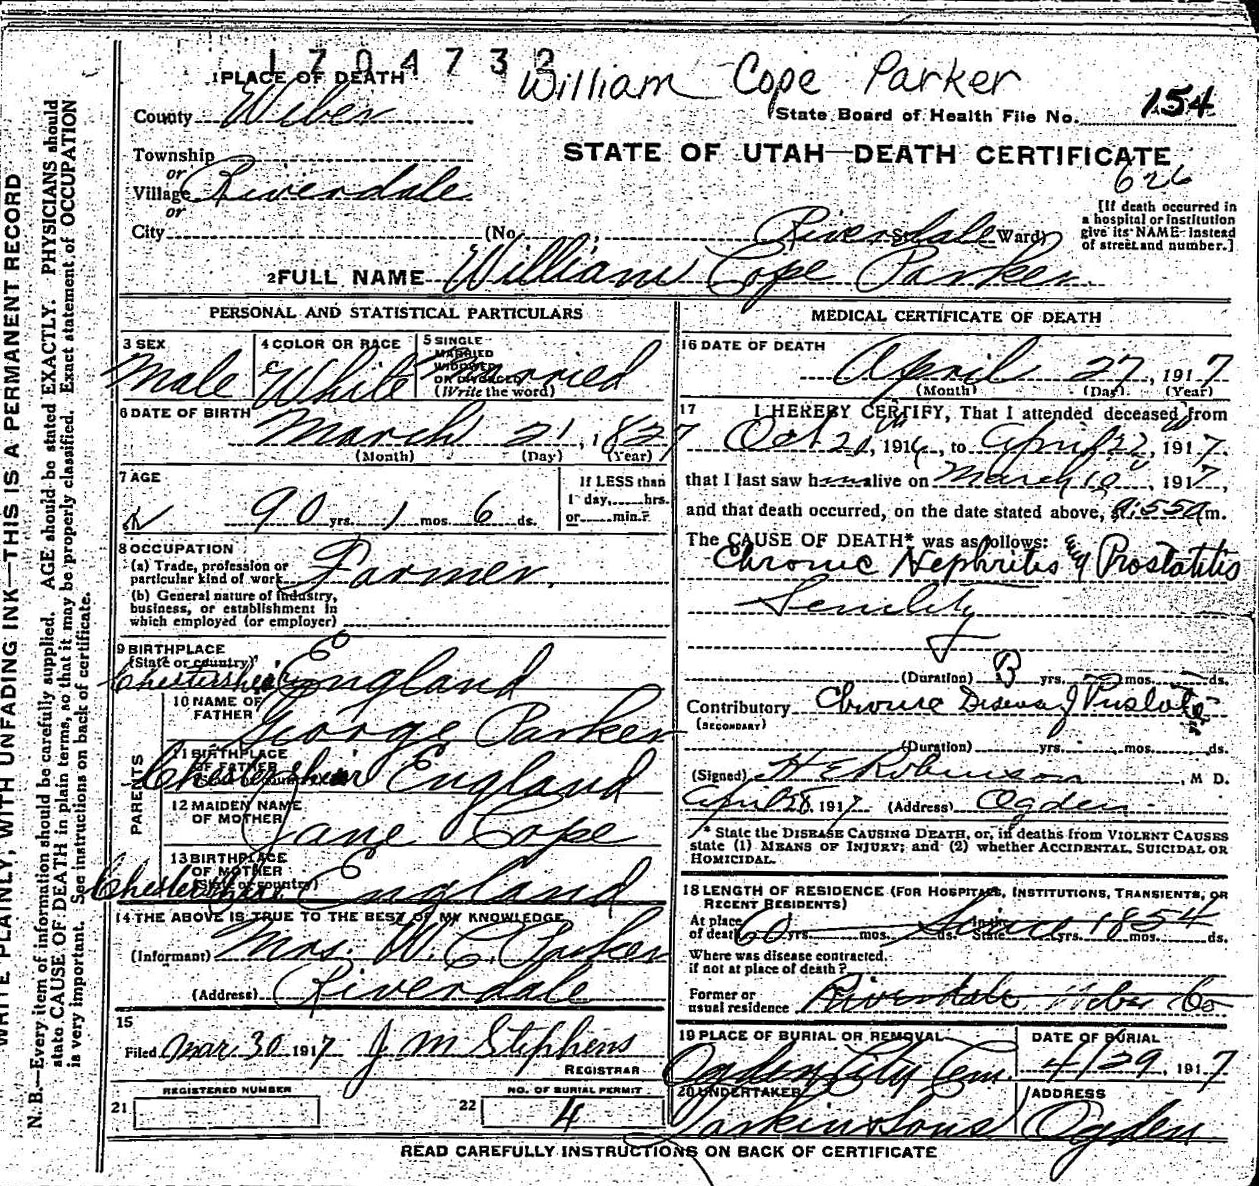 1704732
William Cope Parker
1 PLACE OF DEATH
County Weber
State Board of Health File No. 154
STATE OF UTAH—DEATH CERTIFICATE
626
Township
or
Village Riverdale
or
City (No. ; Riverdale St. Ward)
[If death occurred in a hospital or institution give its NAME instead of street and number.]
2 FULL NAME William Cope Parker
PERSONAL AND STATISTICAL PARTICULARS
3 SEX Male
4 COLOR OR RACE White
5 SINGLE MARRIED WIDOWED OR DIVORCED (Write the word) Married
6 DATE OF BIRTH March 21, 1827
(Month) (Day) (Year)
7 AGE
90 yrs. 1 mos. 6 ds.
If LESS than 1 day, hrs. or min.?
8 OCCUPATION
(a) Trade, profession or particular kind of work Farmer.
(b) General nature of industry, business, or establishment in which employed (or employer)
9 BIRTHPLACE
(State or country) England
PARENTS
10 NAME OF FATHER George Parker
11 BIRTHPLACE OF FATHER (State or country) England
12 MAIDEN NAME OF MOTHER Jane Cope
13 BIRTHPLACE OF MOTHER (State or country) England
14 THE ABOVE IS TRUE TO THE BEST OF MY KNOWLEDGE
(Informant) Mrs. W. C. Parker
(Address) Riverdale
15
Filed Mar. 30 1917 J M Stephens
REGISTRAR
REGISTERED NUMBER
21
NO. OF BURIAL PERMIT
22 4
MEDICAL CERTIFICATE OF DEATH
16 DATE OF DEATH
April 27, 1917
(Month) (Day) (Year)
17 I HEREBY CERTIFY, That I attended deceased from
Oct 1916, to April 1917,
that I last saw h alive on March 10, 1917,
and that death occurred, on the date stated above, m.
The CAUSE OF DEATH* was as follows:
Chronic Nephritis Prostatitis
Senility
(Duration) yrs. mos. ds.
Contributory Chronic
(SECONDARY)
(Duration) yrs. mos. ds.
(Signed) H E Robinson, M D.
April 28, 1917 (Address) Ogden
* State the DISEASE CAUSING DEATH, or, in deaths from VIOLENT CAUSES
state (1) MEANS OF INJURY; and (2) whether ACCIDENTAL, SUICIDAL OR
HOMICIDAL.
18 LENGTH OF RESIDENCE (FOR HOSPITALS, INSTITUTIONS, TRANSIENTS, OR
RECENT RESIDENTS)
At place of death yrs. mos. ds. In the State yrs. mos. ds. Since 1854
Where was disease contracted,
if not at place of death?
Former or
usual residence Riverdale Weber Co
19 PLACE OF BURIAL OR REMOVAL
Ogden City Cem.
DATE OF BURIAL
4/29, 1917
20 UNDERTAKER
Larkin & Sons
ADDRESS
Ogden
READ CAREFULLY INSTRUCTIONS ON BACK OF CERTIFICATE
WRITE PLAINLY, WITH UNFADING INK—THIS IS A PERMANENT RECORD
N. B.—Every item of information should be carefully supplied. AGE should be stated EXACTLY. PHYSICIANS should
state CAUSE OF DEATH in plain terms, so that it may be properly classified. Exact statement of OCCUPATION
is very important. See instructions on back of certificate.